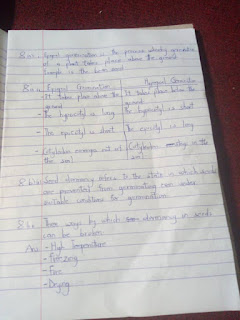 8ai. Epigeal germination is the process whereby germination
of a plant takes place above the ground.
Example is the bean seed
8aii. Epigeal Germination Hypogeal Germination
- It takes place above the ground - It takes place below the ground
- The hypocotyl is long - The hypocotyl is short
- The epicotyl is short - The epicotyl is long
- Cotyledon emerges out of soil - Cotyledon stays in the soil
8bi. Seed dormancy refers to the state in which seeds
are prevented from germinating even under
suitable conditions for germination.
8bii. Three ways by which seed dormancy in seeds
can be broken
Ans: - High Temperature
- Freezing
- Fire
- Drying